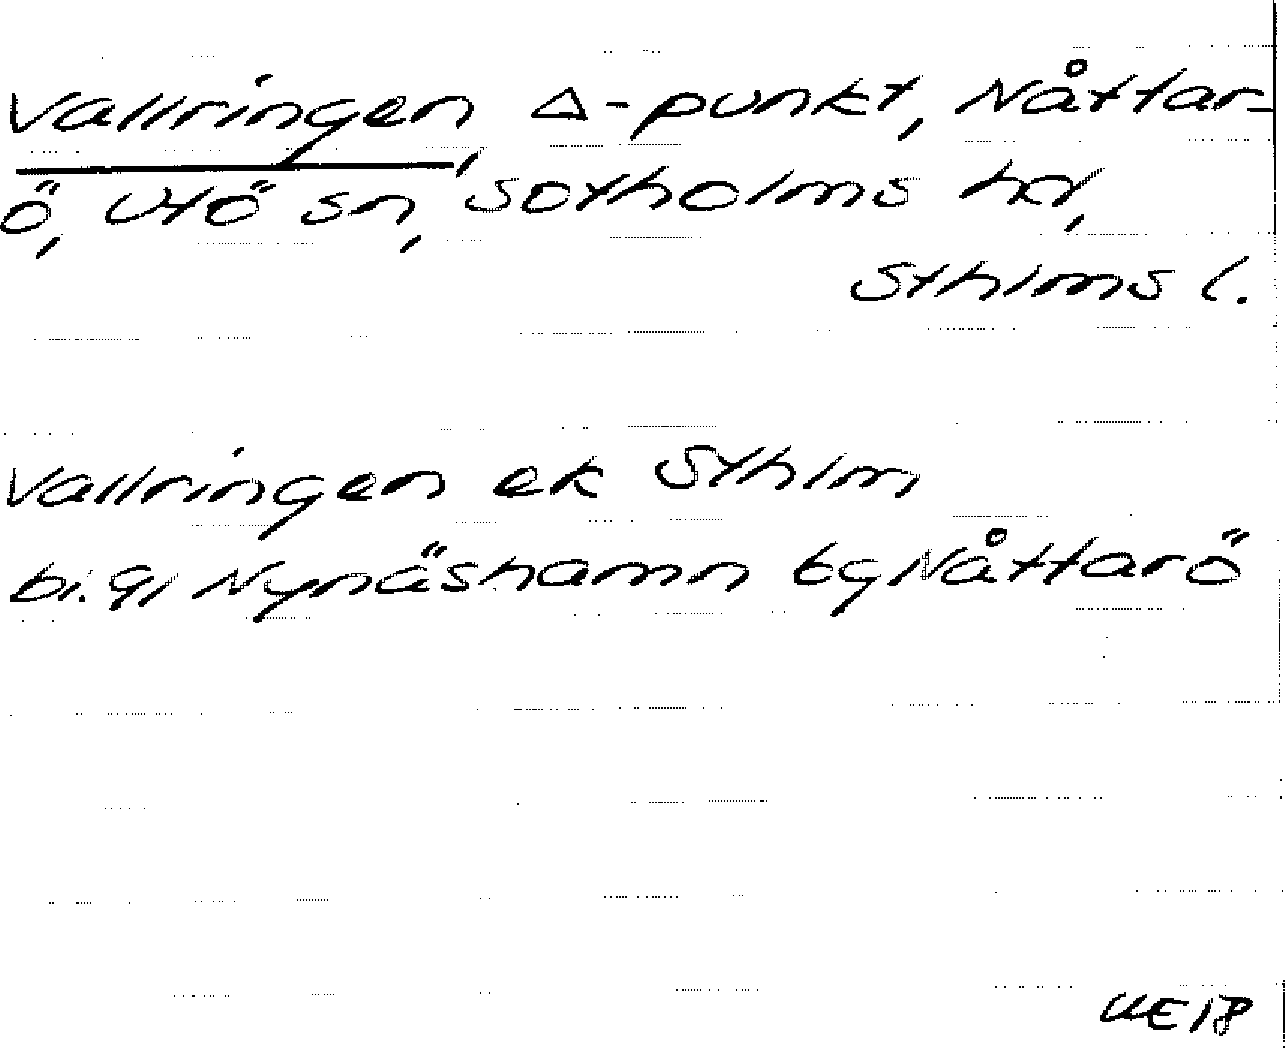 Vallringen, Δ-punkt, Nåttar-
ö, Utö sn, Sotholms hd,
Sthlms l.
Vallringen ek Sthlm
bi. 91 Nynäshamn bg Nåttarö